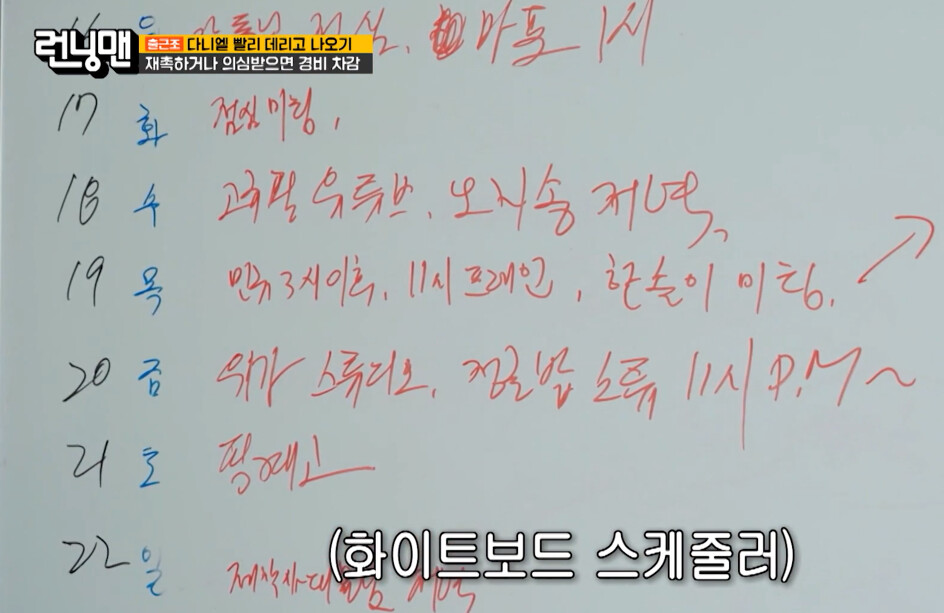 런닝맨
출근조 다니엘 빨리 데리고 나오기
재촉하거나 의심받으면 경비 차감
마포 1시
17 화 점심 미팅,
18 수 유튜브, 오지송 저녁,
19 목 민쥬 3시 이후, 11시 프레인, 한솔이 미팅,
20 금 위가 스튜디오, 정글밥 소튜 11시 P.M ~
21 토 핑계고
22 일 제작사 대표님 저녁
(화이트보드 스케줄러)